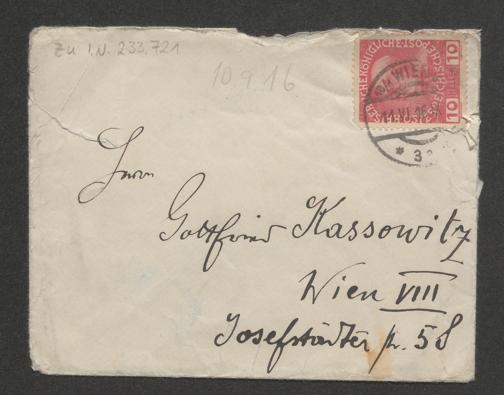 Zu I.N. 233.721
10.9.16
KAISERLICHE KÖNIGLICHE ÖSTERREICHISCHE POST
10 10
WIEN
Herrn
Gottfried Kassowitz
Wien VIII
Josefstädter str. 58